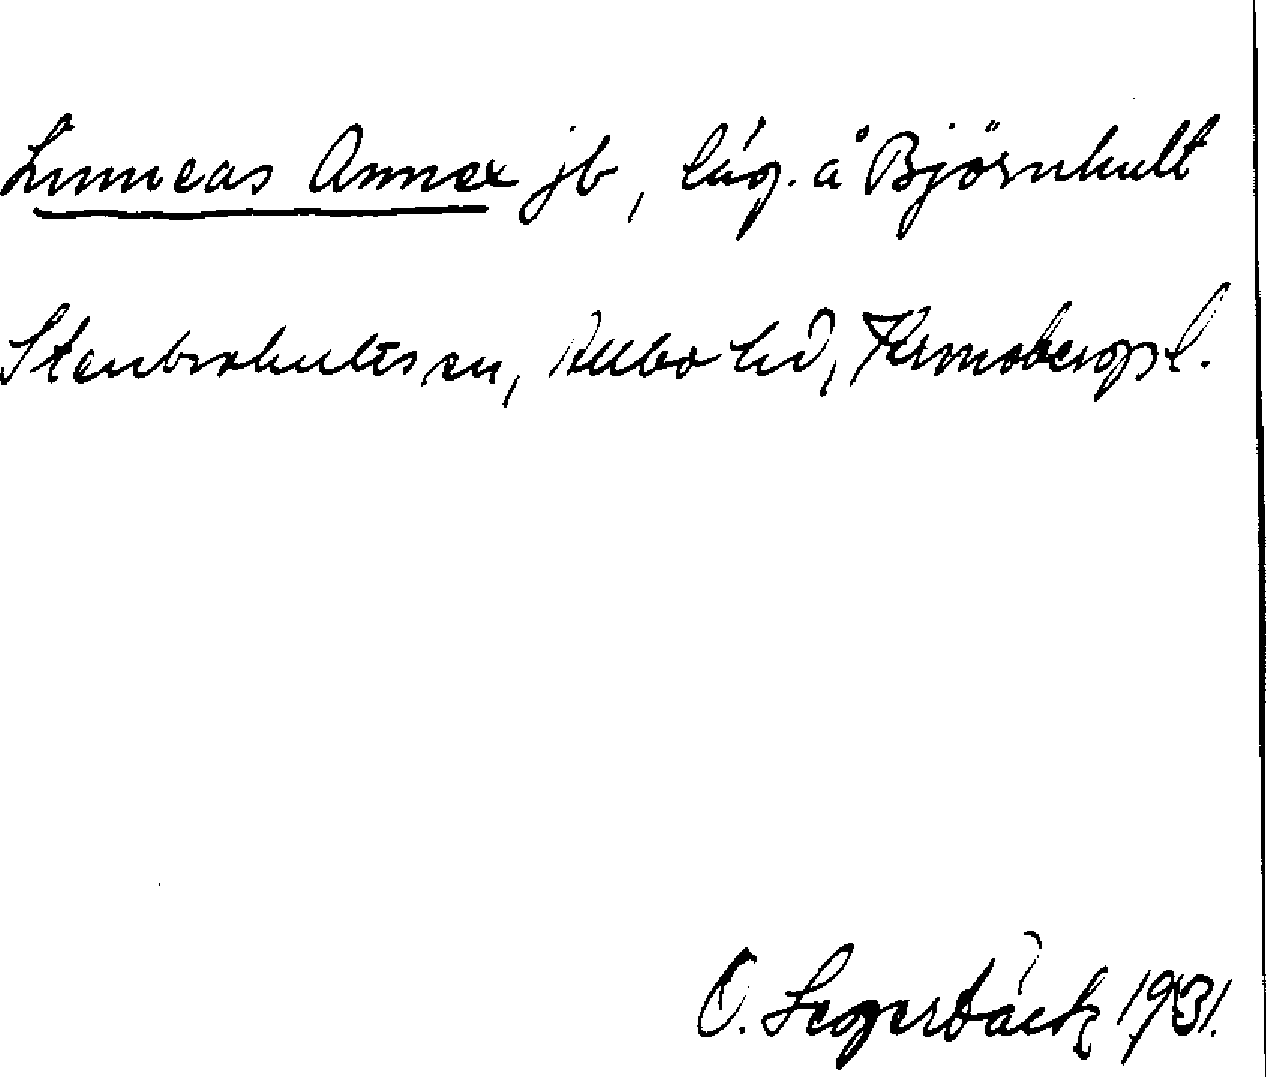 Linneas Annex jb, låg. å Björnhult
Stenbrohults sn, Allbo hd, Kronobergs l.
O. Segerbäck 1931.